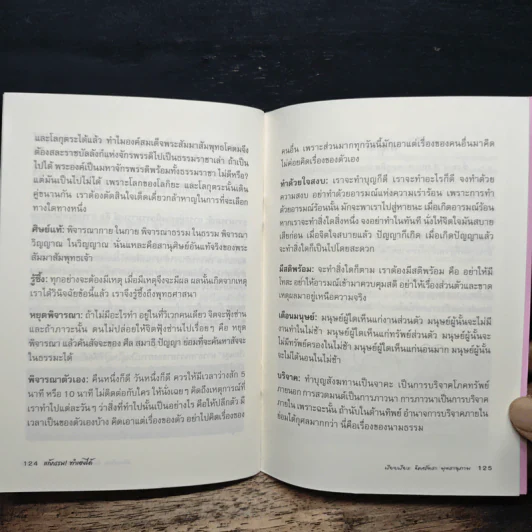 และโลกุตระได้แล้ว ทำไมองค์สมเด็จพระสัมมาสัมพุทธโคดมจึง
ต้องสละราชบัลลังก์แห่งจักรพรรดิไปเป็นธรรมราชาเล่า ถ้าเป็น
ไปได้ พระองค์เป็นมหาจักรพรรดิพร้อมทั้งธรรมราชา ไม่ดีหรือ?
แต่มันเป็นไปไม่ได้ เพราะโลกของโลกียะ และโลกุตระนั้นเดิน
คู่ขนานกัน เราต้องตัดสินใจเด็ดเดี่ยวกล้าหาญในการที่จะเลือก
ทางใดทางหนึ่ง
ศิษย์แท้: พิจารณากาย ในกาย พิจารณาธรรม ในธรรม พิจารณา
วิญญาณ ในวิญญาณ นั่นแหละคือสานุศิษย์อันแท้จริงของพระ
สัมมาสัมพุทธเจ้า
รู้ซึ้ง: ทุกอย่างจะต้องมีเหตุ เมื่อมีเหตุจึงจะมีผล ผลนั้นเกิดจากเหตุ
เราได้วินิจฉัยข้อนี้แล้ว เราจึงรู้ซึ้งถึงพุทธศาสนา
หยุดพิจารณา: ถ้าไม่มีอะไรทำ อยู่ในที่วิเวกคนเดียว จิตจะฟุ้งซ่าน
และถ้าภาวะนั้น ตนไม่ปล่อยให้จิตฟุ้งซ่านไปเรื่อยๆ คือ หยุด
พิจารณา แล้วค้นสัจจะของ ศีล สมาธิ ปัญญา ย่อมที่จะค้นหาสัจจะ
ในธรรมะได้
พิจารณาตัวเอง: คืนหนึ่งก็ดี วันหนึ่งก็ดี ควรให้มีเวลาว่างสัก 5
นาที หรือ 10 นาที ไม่ติดต่อกับใคร ให้นั่งเฉยๆ คิดถึงเหตุการณ์ที่
เราทำไปแต่ละวันๆ ว่าสิ่งที่ทำไปนั้นเป็นอย่างไร คือให้ปลีกตัว มี
เวลาเป็นของตัวเองบ้าง คิดเอาแต่เรื่องของตัว อย่าไปคิดเรื่องของ
124
คนอื่น เพราะส่วนมากทุกวันนี้มักเอาแต่เรื่องของคนอื่นมาคิด
ไม่ค่อยคิดเรื่องของตัวเอง
ทำด้วยใจสงบ: เราจะทำบุญก็ดี เราจะทำอะไรก็ดี จงทำด้วย
ความสงบ อย่าทำด้วยอารมณ์แห่งความเร่าร้อน เพราะการทำ
ด้วยอารมณ์ร้อนนั้น มักจะพาเราไปสู่หายนะ เมื่อเกิดอารมณ์ร้อน
หากเราจะทำสิ่งใดสิ่งหนึ่ง จงอย่าทำในทันที นั่งให้จิตใจมันสบาย
เสียก่อน เมื่อจิตใจสบายแล้ว ปัญญาก็เกิด เมื่อเกิดปัญญาแล้ว
จะทำสิ่งใดก็เป็นไปโดยสะดวก
มีสติพร้อม: จะทำสิ่งใดก็ตาม เราต้องมีสติพร้อม คือ อย่าให้มี
โทสะ อย่าให้อารมณ์เข้ามาควบคุมสติ อย่าให้เรื่องส่วนตัวและขาด
เหตุผลมาอยู่เหนือความจริง
เตือนมนุษย์: มนุษย์ผู้ใดเห็นแก่งานส่วนตัว มนุษย์ผู้นั้นจะไม่มี
งานทำในไม่ช้า มนุษย์ผู้ใดเห็นแก่ทรัพย์ส่วนตัว มนุษย์ผู้นั้นจะ
ไม่มีทรัพย์ครองในไม่ช้า มนุษย์ผู้ใดเห็นแก่นอนมาก มนุษย์ผู้นั้น
จะไม่ได้นอนในไม่ช้า
บริจาค: ทำบุญสังฆทานเป็นจาคะ เป็นการบริจาคโภคทรัพย์
ภายนอก การสวดมนต์เป็นการภาวนา การภาวนาเป็นการบริจาค
ภายใน เพราะฉะนั้น ถ้านับในด้านทิพย์ อำนาจการบริจาคภายใน
ย่อมได้กุศลมากกว่า นี่คือเรื่องของนามธรรม
125